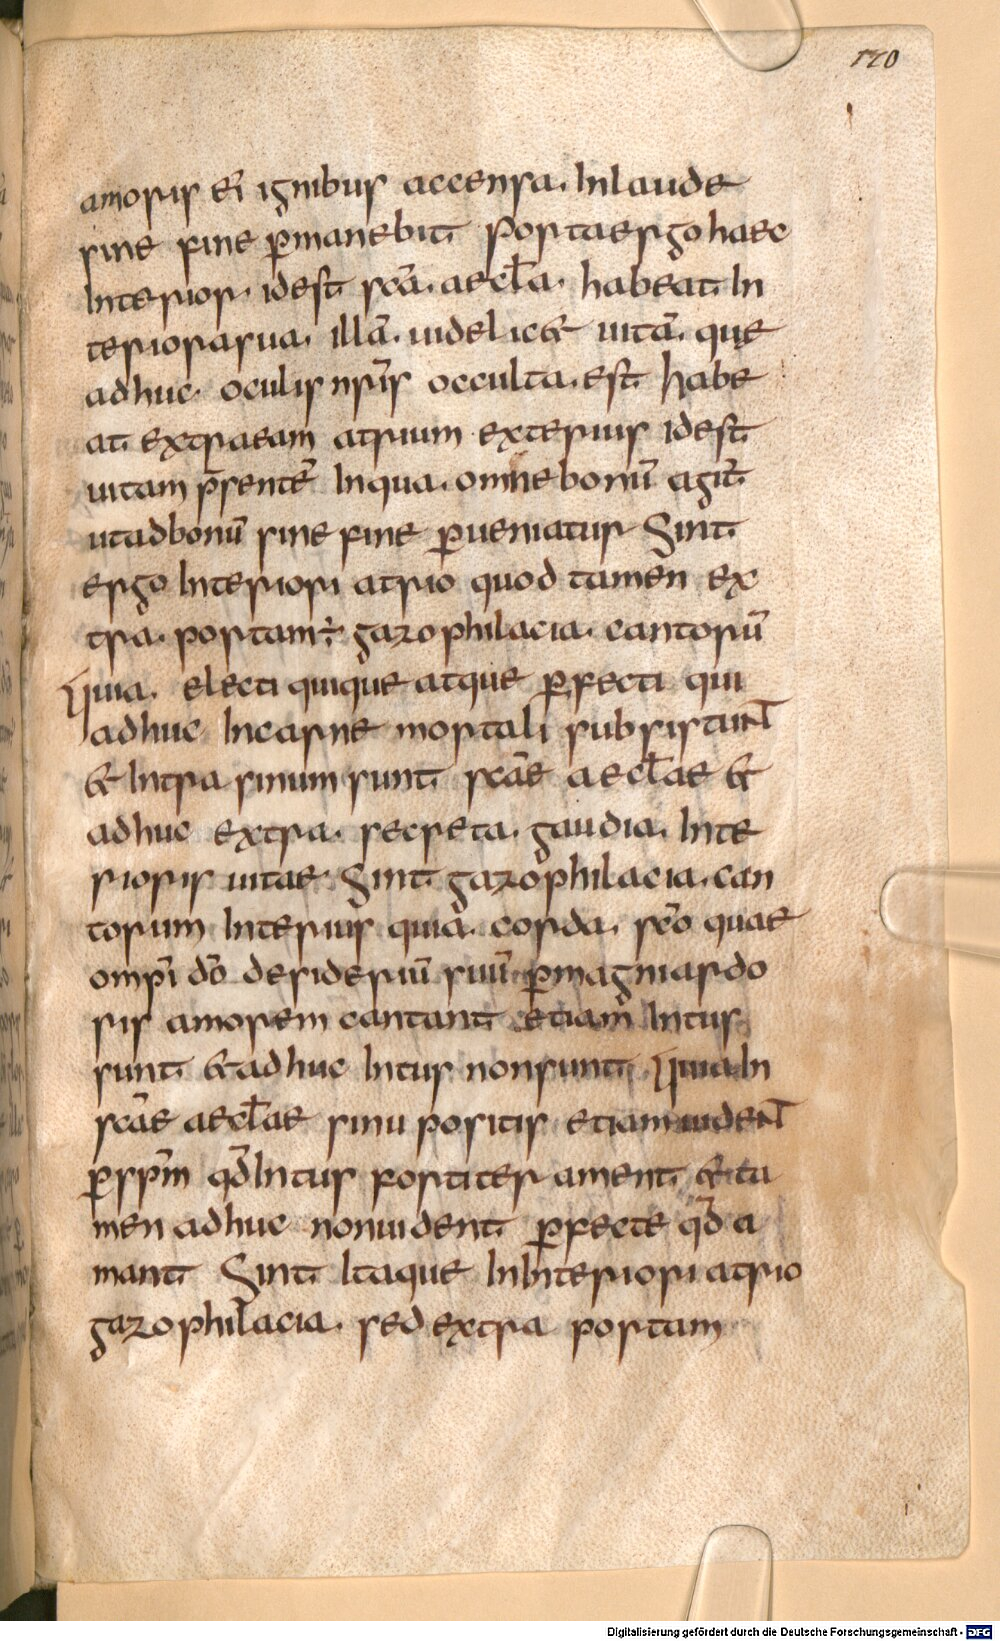 170
amoris ei ignibus accensa. In laude
sine fine p̄manebit Porta ergo haec
Interior. idest sc̄a. aecl̄a. habeat In
teriora sua. illā. uidelic& uitā. que
adhuc. oculis nr̄is occulta. est habe
at extra eam atrium exterius idest
uitam p̄sentē In qua. omne bonū agit᷑
ut ad bonū sine fine p̄ueniatur Sint
ergo Interiori atrio quod tamen ex
tra. portam ÷ gazophilacia. cantorū
Quia. electi quique atque p̄fecti qui
adhuc In carne mortali subsistunt
& Intra sinum sunt sc̄ae aecl̄ae &
adhuc extra. secreta. gaudia. Inte
rioris uitae. Sint gazophilacia. can
torum Interius quia. corda. sc̄o quae
omp̄i dō desideriū suū p̄ magni ardo
ris amorem cantant etiam Intus
sunt & adhuc Intus non sunt Quia In
sc̄ae aecl̄ae sinu positis etiam uident
p̄ sp̄m qd̄ Intus fortiter ament & ta
men adhuc non uident p̄fecte qd̄ a
mant Sint Itaque In Interiori atrio
gazophilacia. sed extra portam
Digitalisierung gefördert durch die Deutsche Forschungsgemeinschaft - DFG